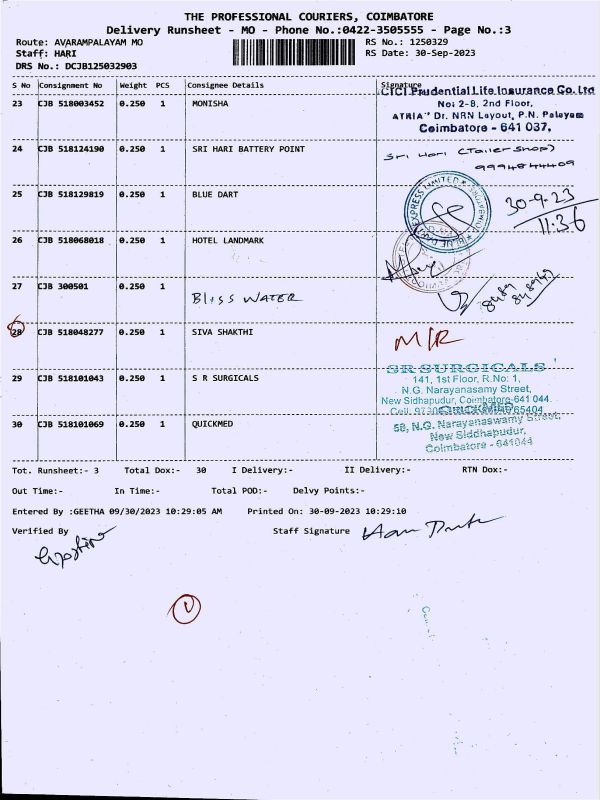 THE PROFESSIONAL COURIERS, COIMBATORE
Delivery Runsheet - MO - Phone No.:0422-3505555 - Page No.:3
Route: AVARAMPALAYAM MO RS No.: 1250329
Staff: HARI RS Date: 30-Sep-2023
DRS No.: DCJB125032903
S No Consignment No Weight PCS Consignee Details Signature
23 CJB 518003452 0.250 1 MONISHA
ICICI Prudential Life Insurance Co. Ltd
No: 2-B, 2nd Floor,
"ATRIA" Dr. NRN Layout, P.N. Palayam
Coimbatore - 641 037.
24 CJB 518124190 0.250 1 SRI HARI BATTERY POINT
Sri Hari (Tailer Shop)
9994844409
25 CJB 518129819 0.250 1 BLUE DART
30-9-23
11:36
26 CJB 518068018 0.250 1 HOTEL LANDMARK
27 CJB 300501 0.250 1 BLISS WATER
28 CJB 518048277 0.250 1 SIVA SHAKTHI M/R
29 CJB 518101043 0.250 1 S R SURGICALS
SR SURGICALS
141, 1st Floor, R.No: 1,
N.G. Narayanasamy Street,
New Sidhapudur, Coimbatore-641 044.
30 CJB 518101069 0.250 1 QUICKMED
QUICKMED
58, N.G. Narayanaswamy Street,
New Siddhapudur,
Coimbatore - 641044
Tot. Runsheet:- 3 Total Dox:- 30 I Delivery:- II Delivery:- RTN Dox:-
Out Time:- In Time:- Total POD:- Delvy Points:-
Entered By :GEETHA 09/30/2023 10:29:05 AM Printed On: 30-09-2023 10:29:10
Verified By Staff Signature